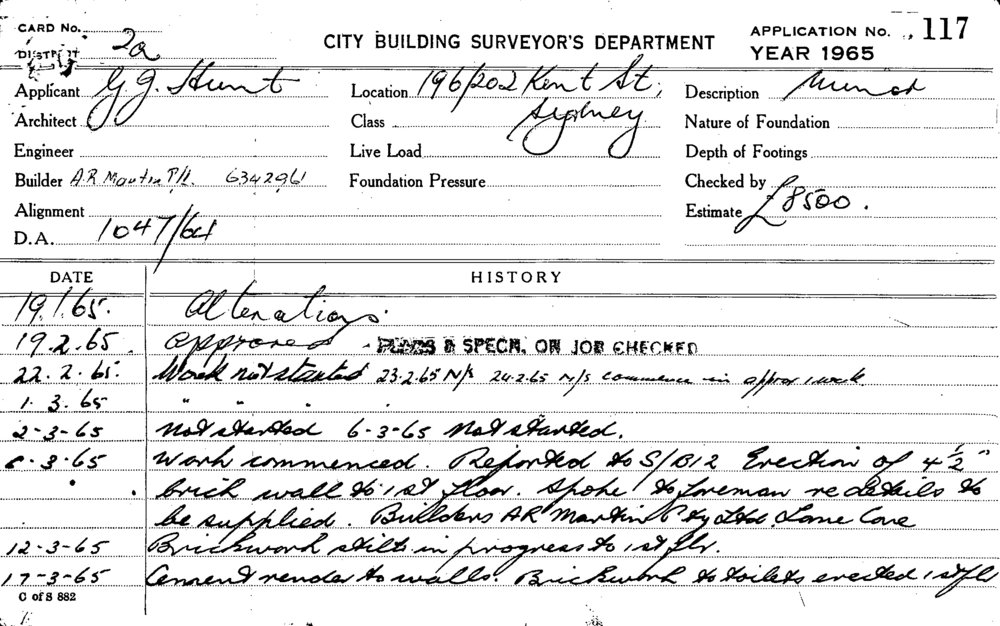 CARD No.
CITY BUILDING SURVEYOR'S DEPARTMENT
APPLICATION No. 117
YEAR 1965
DISTRICT 2a
Applicant G J. Hunt
Location 196/202 Kent St, Sydney
Description
Architect
Class
Nature of Foundation
Engineer
Live Load
Depth of Footings
Builder A.R Martin P/L. 6342961
Foundation Pressure
Checked by
Alignment
Estimate £8500.
D.A. 1047/64
DATE HISTORY
19.1.65. Alterations.
19.2.65. Approved PLANS & SPECN. ON JOB CHECKED
22.2.65. Work not started 23.2.65 N/s 24.2.65 N/s commence in approx 1 week
1.3.65 " " "
2-3-65 Not started 6-3-65 Not started.
8.3.65 Work commenced. Reported to S/B12 Erection of 4½"
brick wall to 1st floor. Spoke to foreman re details to
be supplied. Builders AR Martin Pty Ltd Lane Cove
12-3-65 Brickwork still in progress to 1st flr.
17-3-65 Cement render to walls. Brickwork to toilets erected 1st flr
C of S 882